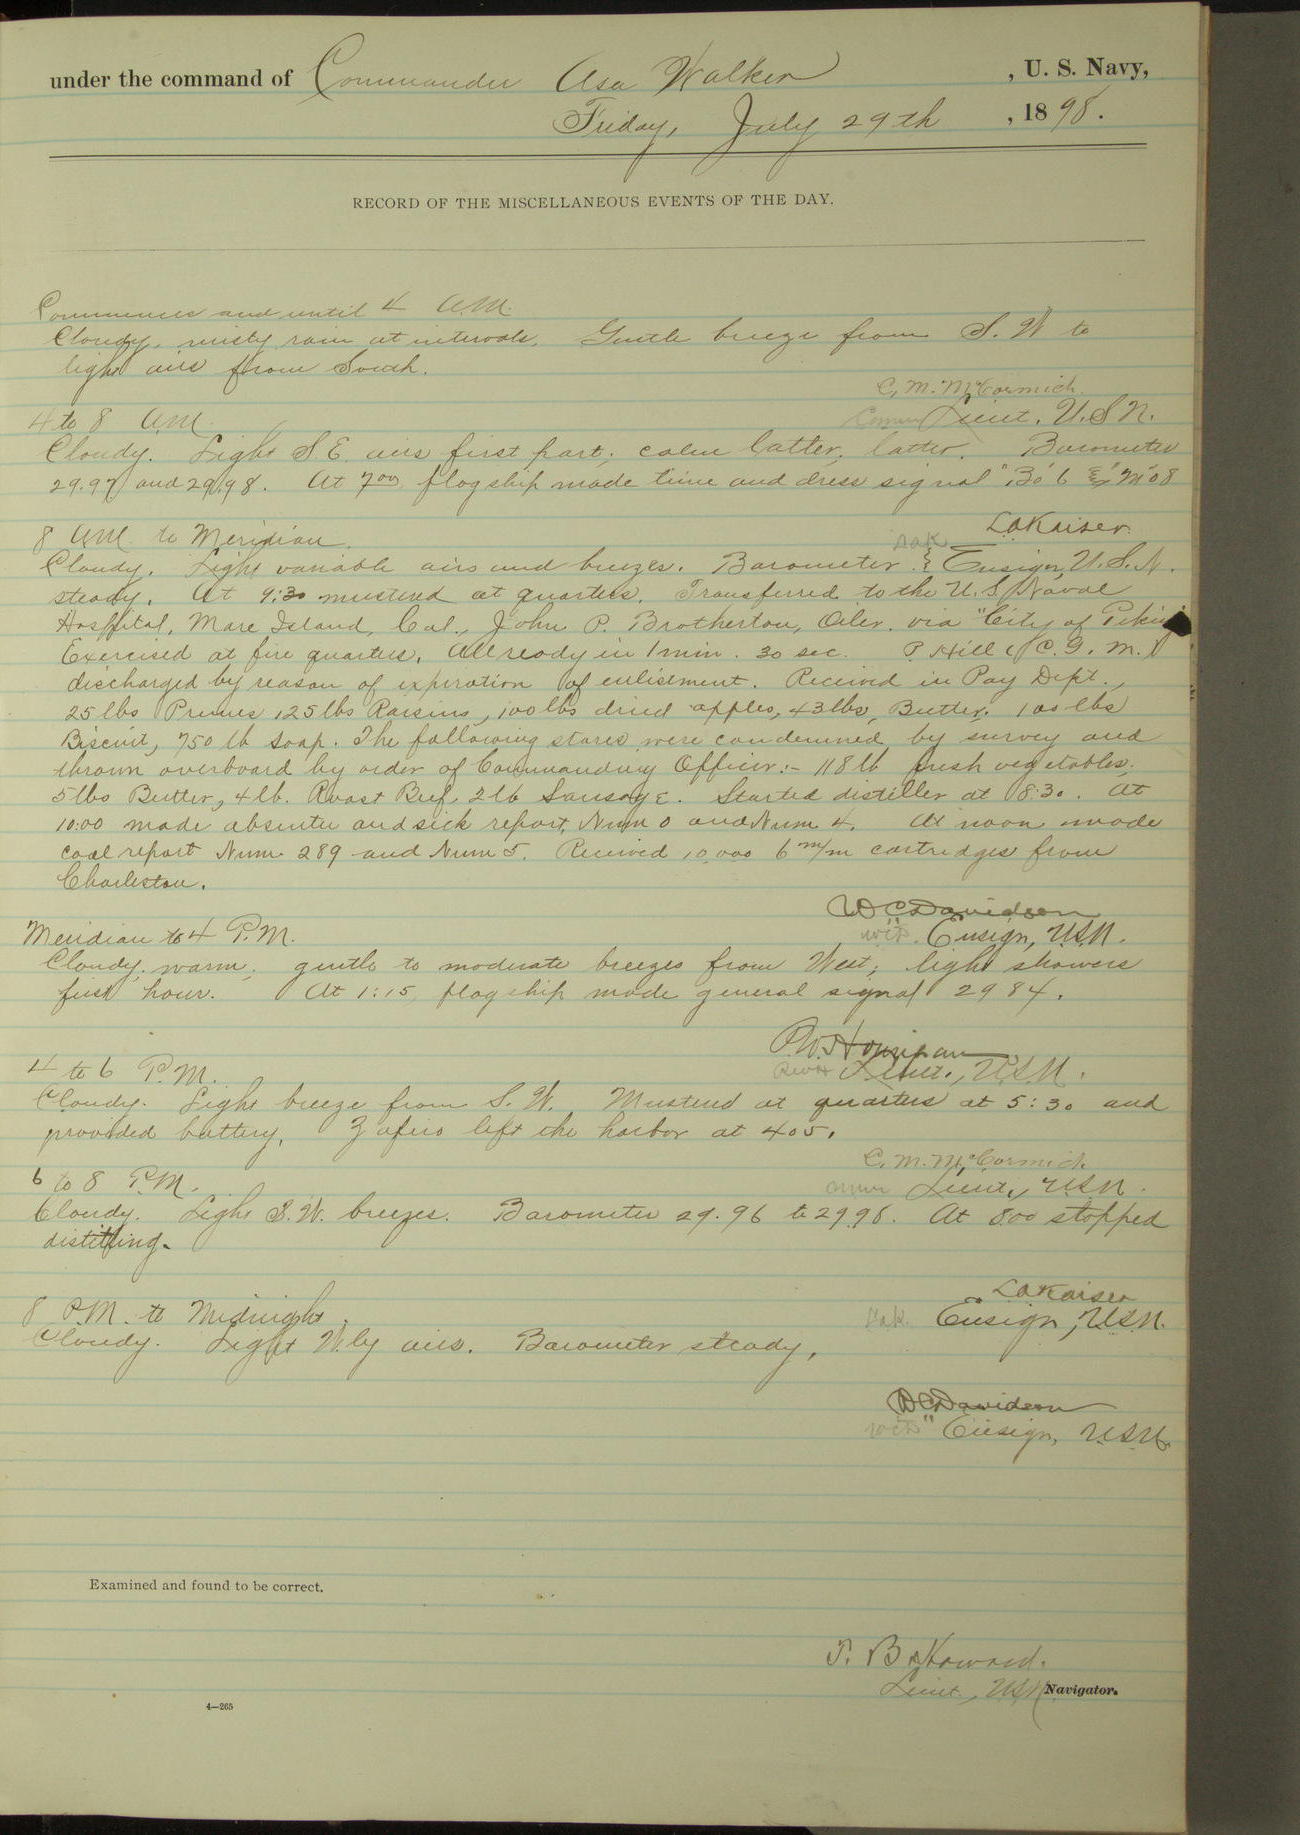 under the command of Commander Asa Walker , U. S. Navy,
Friday, July 29th , 1898.
RECORD OF THE MISCELLANEOUS EVENTS OF THE DAY.
Commences and until 4 A.M.
Cloudy, misty rain at intervals. Gentle breeze from S. W to
light airs from South.
C. M. McCormick
Lieut. U.S.N.
4 to 8 A.M.
Cloudy. Light S.E. airs first part; calm latter, latter. Barometer
29.97 and 29.98. At 7 00 flagship made time and dress signal
L A Kaiser
8 A.M. to Meridian
Ensign, U.S.N.
Cloudy. Light variable airs and breezes. Barometer
steady. At 9:30 mustered at quarters. Transferred to the U.S. Naval
Hospital, Mare Island, Cal., John P. Brotherton, Oiler. via "City of Pekin
Exercised at fire quarters. All ready in 1 min. 30 sec. P. Hill (C. G. M.)
discharged by reason of expiration of enlistment. Received in Pay Dept.,
25 lbs Prunes, 125 lbs Raisins, 100 lbs dried apples, 43 lbs, Butter. 100 lbs
Biscuit, 750 lb Soap. The following stores were condemned by survey and
thrown overboard by order of Commanding Officer:- 118 lb fresh vegetables,
5 lbs Butter, 4 lb. Roast Beef, 2 lb Sausage. Started distiller at 8:30. At
10:00 made absentee and sick report, Num 0 and Num 4. At noon made
coal report Num 289 and Num 5. Received 10,000 6 m/m cartridges from
Charleston.
W C Davidson
Ensign, U.S.N.
Meridian to 4 P.M.
Cloudy, warm, gentle to moderate breezes from West; light showers
first hour. At 1:15 flagship made general signal 2984.
P. W. Hourigan
Lieut., U.S.N.
4 to 6 P.M.
Cloudy. Light breeze from S. W. Mustered at quarters at 5:30 and
provided battery. Zafiro left the harbor at 405.
C. M. McCormick
Lieut., U.S.N.
6 to 8 P.M.
Cloudy. Light S.W. breezes. Barometer 29.96 to 29.98. At 8.00 stopped
distilling.
L A Kaiser
Ensign, U.S.N.
8 P.M. to Midnight.
Cloudy. Light W.ly airs. Barometer steady,
W C Davidson
Ensign, U.S.N.
Examined and found to be correct.
T. B. Howard.
Lieut., U.S.N. Navigator.
4—265